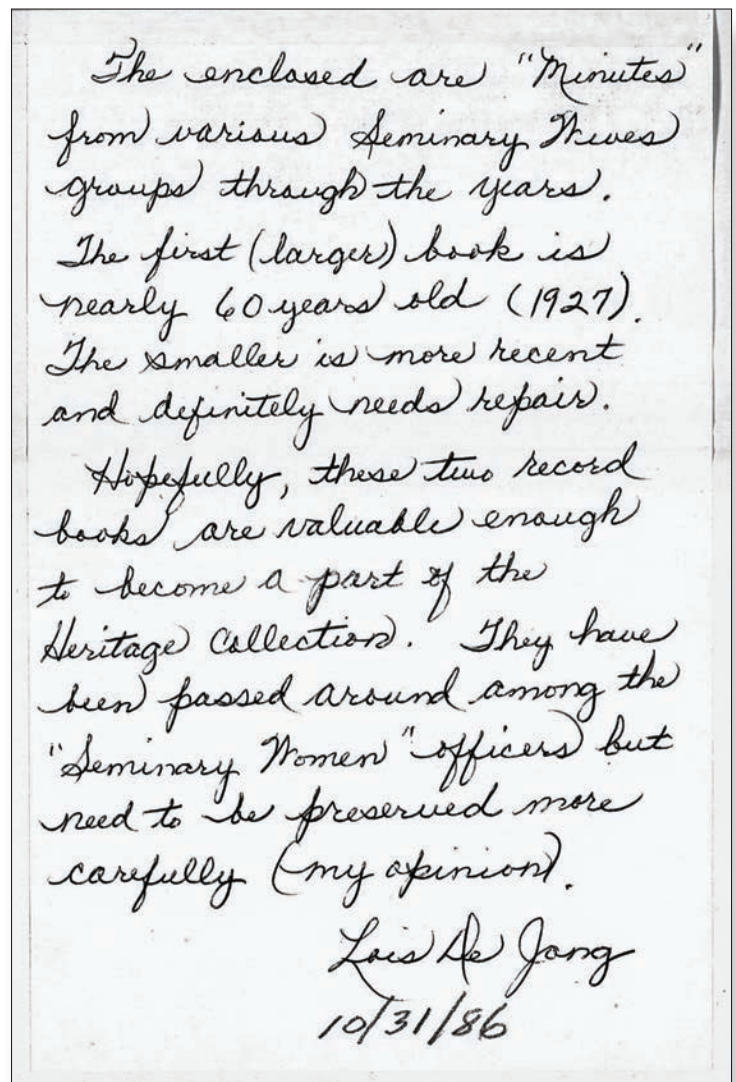 The enclosed are "Minutes"
from various Seminary Wives
groups through the years.
The first (larger) book is
nearly 60 years old (1927).
The smaller is more recent
and definitely needs repair.
Hopefully, these two record
books are valuable enough
to become a part of the
Heritage Collection. They have
been passed around among the
"Seminary Women" officers but
need to be preserved more
carefully (my opinion).
Lois De Jong
10/31/86